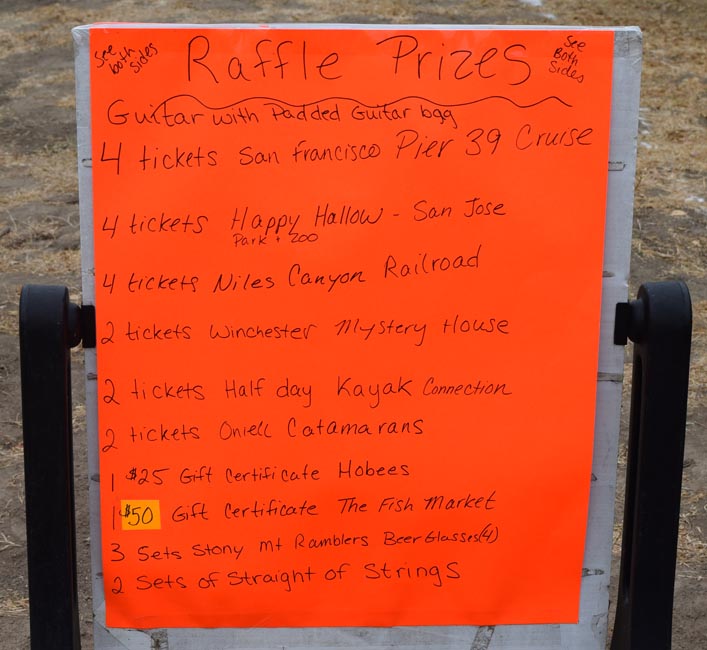 See both sides
Raffle Prizes
See Both Sides
Guitar with Padded Guitar bag
4 tickets San Francisco Pier 39 Cruise
4 tickets Happy Hallow - San Jose
Park + Zoo
4 tickets Niles Canyon Railroad
2 tickets Winchester Mystery House
2 tickets Half day Kayak Connection
2 tickets Oniell Catamarans
1 $25 Gift Certificate Hobees
1 $50 Gift Certificate The Fish Market
3 Sets Stony Mt Ramblers Beer Glasses(4)
2 Sets of Straight of Strings